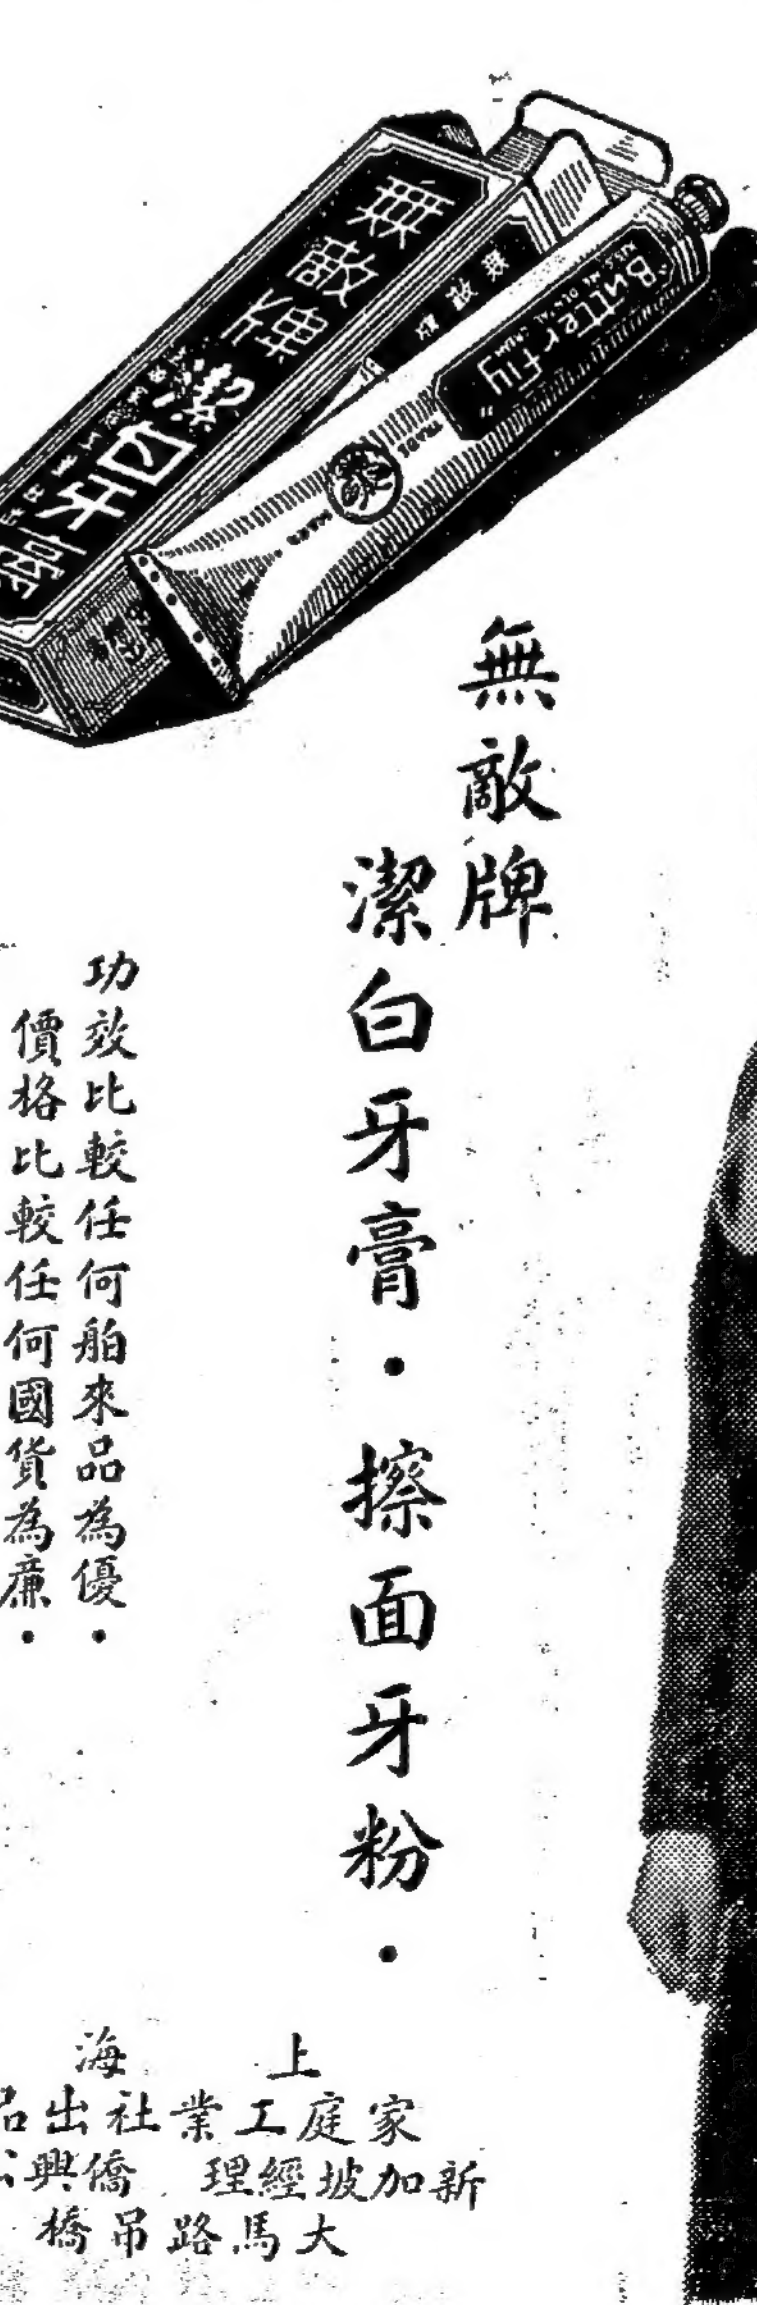 無敵牌
潔白牙膏
無敵牌
"Butterfly"
無敵牌
潔白牙膏・擦面牙粉・
功效比較任何舶來品為優・
價格比較任何國貨為廉・
上海
家庭工業社出品
新加坡經理 僑興公
大馬路吊橋